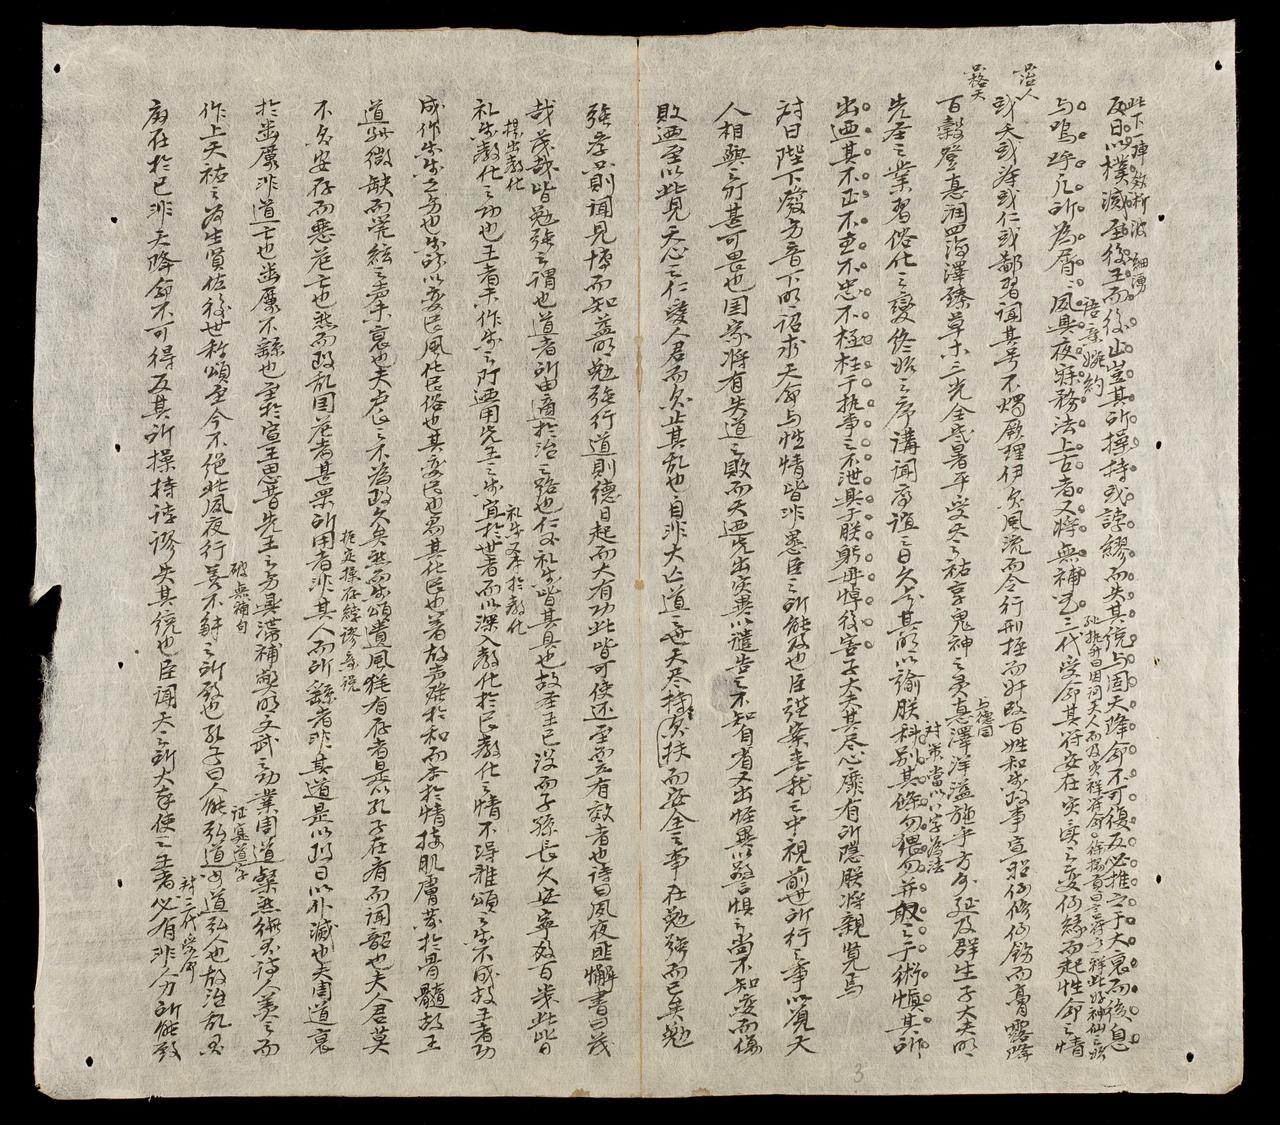 反日以撲滅至後王而後止豈其所操持或誖繆而失其統与固天降命不可復反必推之于大衰而後息
与嗚呼凡所為屑〻夙興夜寐務法上古者又將無補与三代受命其符安在灾異之變何緣而起性命之情
或夭或壽或仁或鄙習聞其号不燭厥理伊欲風流而令行刑輕而奸改百姓和樂政事宣昭何修何飭而膏露降
百穀登惪潤四海澤臻草木三光全寒暑平受天之祜享鬼神之灵惪澤洋溢施乎方外延及群生子大夫明
先圣之業習俗化之變終始之序講聞高誼之日久矣其明以諭朕科別其條勿猥勿并取之于術慎其所
出廼其不正不直不忠不極枉于执事之不泄興于朕躬毋悼後害子大夫其尽心靡有所隱朕将親覽焉
対曰陛下發㥁音下明詔求天命与性情皆非愚臣之所能及也臣謹案春秋之中視前世所行之事以覌天
人相與之际甚可畏也国家将有失道之敗而天廼先出灾異以譴告之不知自省又出怪異以警惧之尚不知变而傷
敗廼至以此見天心之仁愛人君而欲止其乱也自非大亡道之世者天尽欲扶持而安全之事在勉強而已矣勉
強学问則闻見博而知益明勉強行道則德日起而大有功此皆可使还至而立有效者也诗曰夙夜匪懈書曰茂
哉茂哉皆勉强之謂也道者所由適於治之路也仁义礼乐皆其具也故圣王已没而子孫長久安寧数百歲此皆
礼乐教化之功也王者未作乐之时廼用先王之乐宜於世者而以深入教化於民教化之情不得雅頌之乐不成故王者功
成作乐乐其㥁也乐者所以变民風化民俗也其变民也易其化民也著故声發於和而本於情接肌膚藏於骨髓故王
道虽微缺而筦絃之声未衰也夫虞氏之不為政久矣然而乐頌遺風犹有存者是以孔子在齐而闻韶也夫人君莫
不欲安存而惡危亡也然而政乱国危者甚衆所用者非其人而所繇者非其道是以政日以仆滅也夫周道衰
於幽厲非道亡也幽厲不繇也至於宣王思昔先王之㥁興滞補弊明文武之功業周道粲然復興诗人美之而
作上天祐之为生賢佐後世称頌至今不绝此夙夜行善不解之所致也孔子曰人能弘道非道弘人也故治乱廢
興在於己非天降命不可得反其所操持誖謬失其統也臣闻天之所大奉使之王者必有非人力所能致